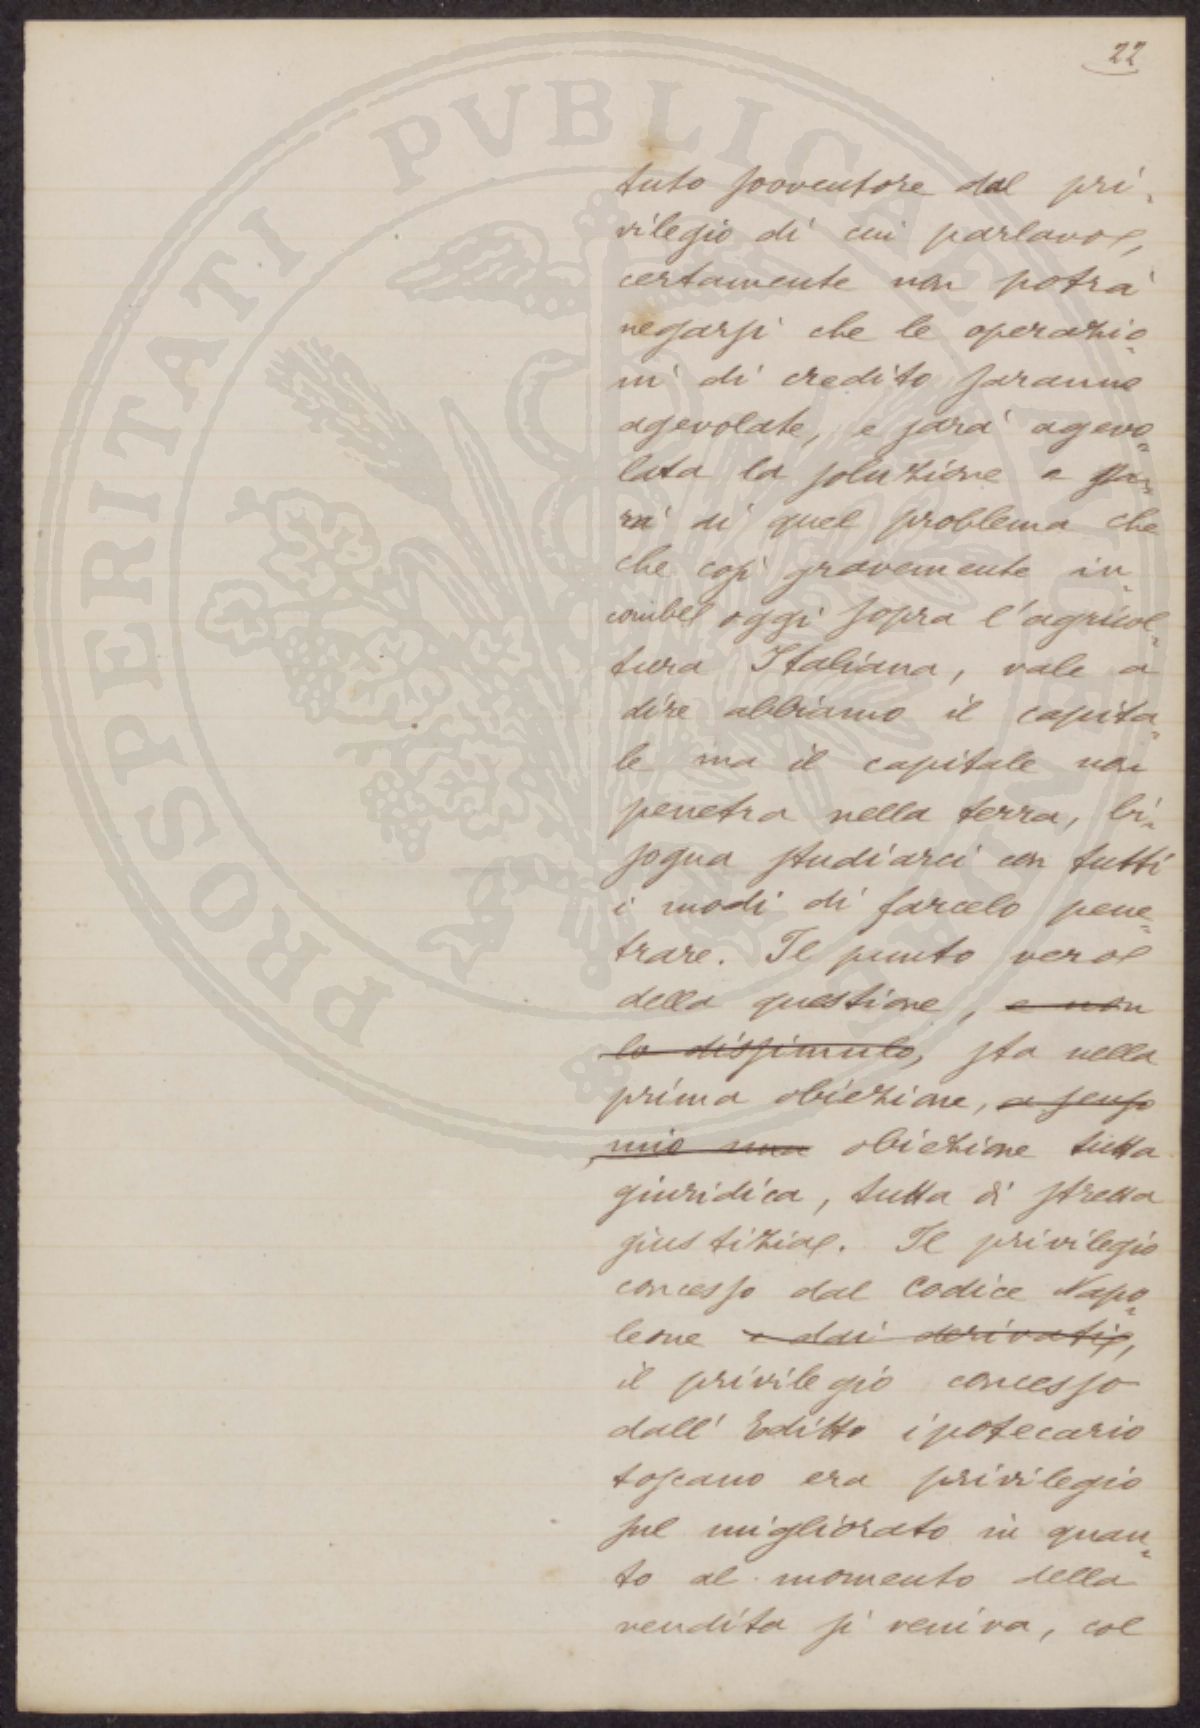 22
PROSPERITATI PVBLICAE AVGENDAE
tuto sovventore dal pri-
vilegio di cui parlavo,
certamente non potrà
negarsi che le operazio-
ni di credito saranno
agevolate, e sarà agevo-
lata la soluzione a
di quel problema che
che così gravemente in-
combe oggi sopra l'agricol-
tura Italiana, vale a
dire abbiamo il capita-
le ma il capitale non
penetra nella terra, bi-
sogna studiarci con tutti
i modi di farcelo pene-
trare. Il punto vero
della questione, e non
lo dissimulo, sta nella
prima obiezione, a senso
mio una obiezione tutta
giuridica, tutta di stretta
giustizia. Il privilegio
concesso dal Codice Napo-
leone e dai derivati,
il privilegio concesso
dall'Editto ipotecario
toscano era privilegio
sul migliorato in quan-
to al momento della
vendita si veniva, col